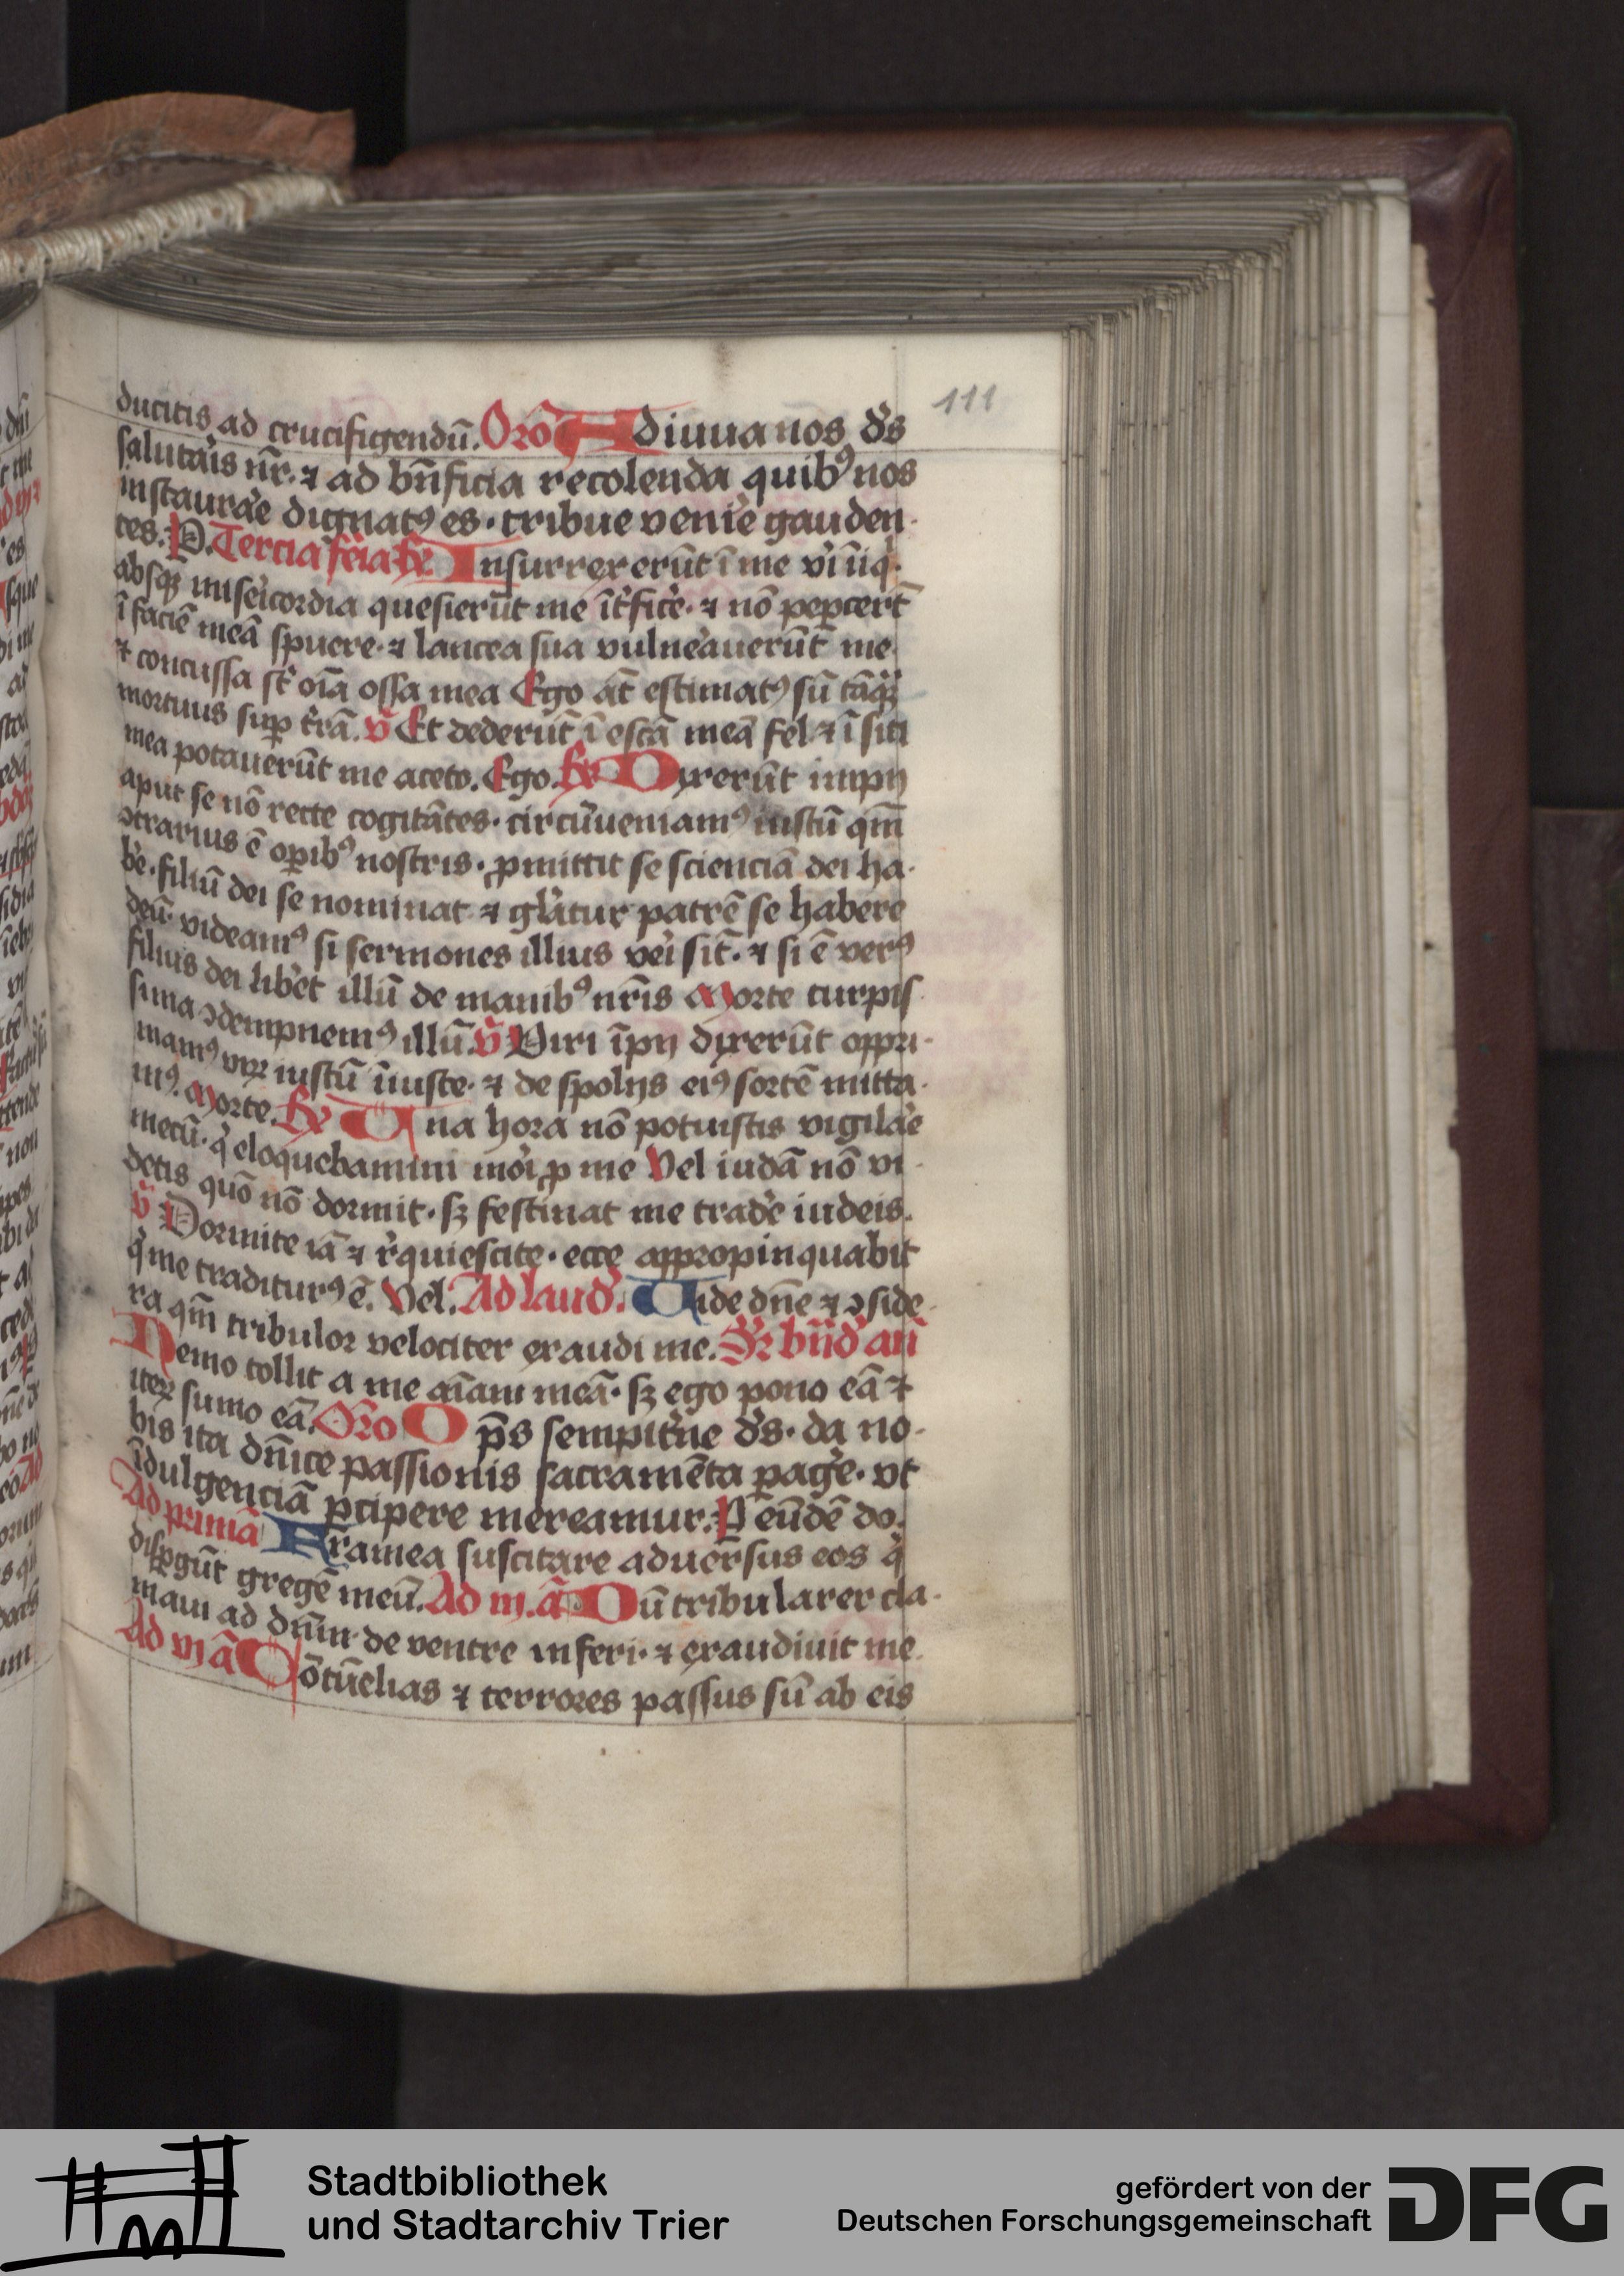 111
ducitis ad crucifigendū. Oro Adiuua nos ds̄
salutaˀis nr̄. ⁊ ad bn̄ficia recolenda quibꝰ nos
instauraˀe dignatꝰ es · tribue venirˀe gauden-
tes. P. Tercia feˀia R̄ Insurrexerūt ī me viˀ iīqˀ.
absqꝫ miseˀicordia quesierūt me īt̄ficˀe · ⁊ nō peꝑcert̄
ī faciē meā spuere · ⁊ lancea sua vulneˀauerūt me
⁊ concussa st̄ oīa ossa mea Ego at̄ estimatꝰ sū tāqꝫ
mortuus suꝑ tˀrā. v̄ Et dederūt ī escā meā fel ⁊ ī siti
mea potauerūt me aceto. Ego. R̄ Dixerūt impij
aput se nō recte cogitātes · circūueniamꝰ iustū qm̄
ꝯtrarius ē oꝑibꝰ nostris · ꝓmittit se scienciā dei ha-
bˀe · filiū dei se nominat ⁊ glˀatur patrē se habere
deū · videamꝰ si sermones illius veˀi sīt · ⁊ si ē verꝰ
filius dei libˀet illū de manibꝰ nr̄is Morte turpis
sima ꝯdempnemꝰ illū. v̄ Viri īpij dixerūt oppri-
mamꝰ vyꝝ iustū īiuste · ⁊ de spolijs eiꝰ sortē mitta-
mꝰ. Morte. R̄ Una hora nō potuistis vigilaˀe
mecū · qˀ eloquebamini moˀi ꝓ me Vel iudā nō vi-
detis quō nō dormit · sꝫ festinat me tradˀe iudeis.
v̄ Dormite iā ⁊ rˀquiescite · ecce appropinquabit
qˀ me traditurꝰ ē. Vel. Ad laudˀ. Uide dn̄e ⁊ ꝯside-
ra qm̄ tribulor velociter exaudi me. Sr bn̄d̄ añ
Nemo tollit a me aīam meā · sꝫ ego pono eā ⁊
iteꝝ sumo eā. Oro Op̄s sempitˀne ds̄ · da no-
bis ita dn̄ice passionis sacramēta ꝑagˀe · vt
īdulgenciā ꝑcipere mereamur. P eūdē do.
Ad primā Framea suscitare aduersus eos qˀ
disꝑgūt gregē meū. Ad iij. ā Dū tribularer cla-
maui ad dn̄m · de ventre inferi · ⁊ exaudiuit me
Ad vj ā Cōtūelias ⁊ terrores passus sū ab eis
Stadtbibliothek
und Stadtarchiv Trier
gefördert von der
Deutschen Forschungsgemeinschaft
DFG